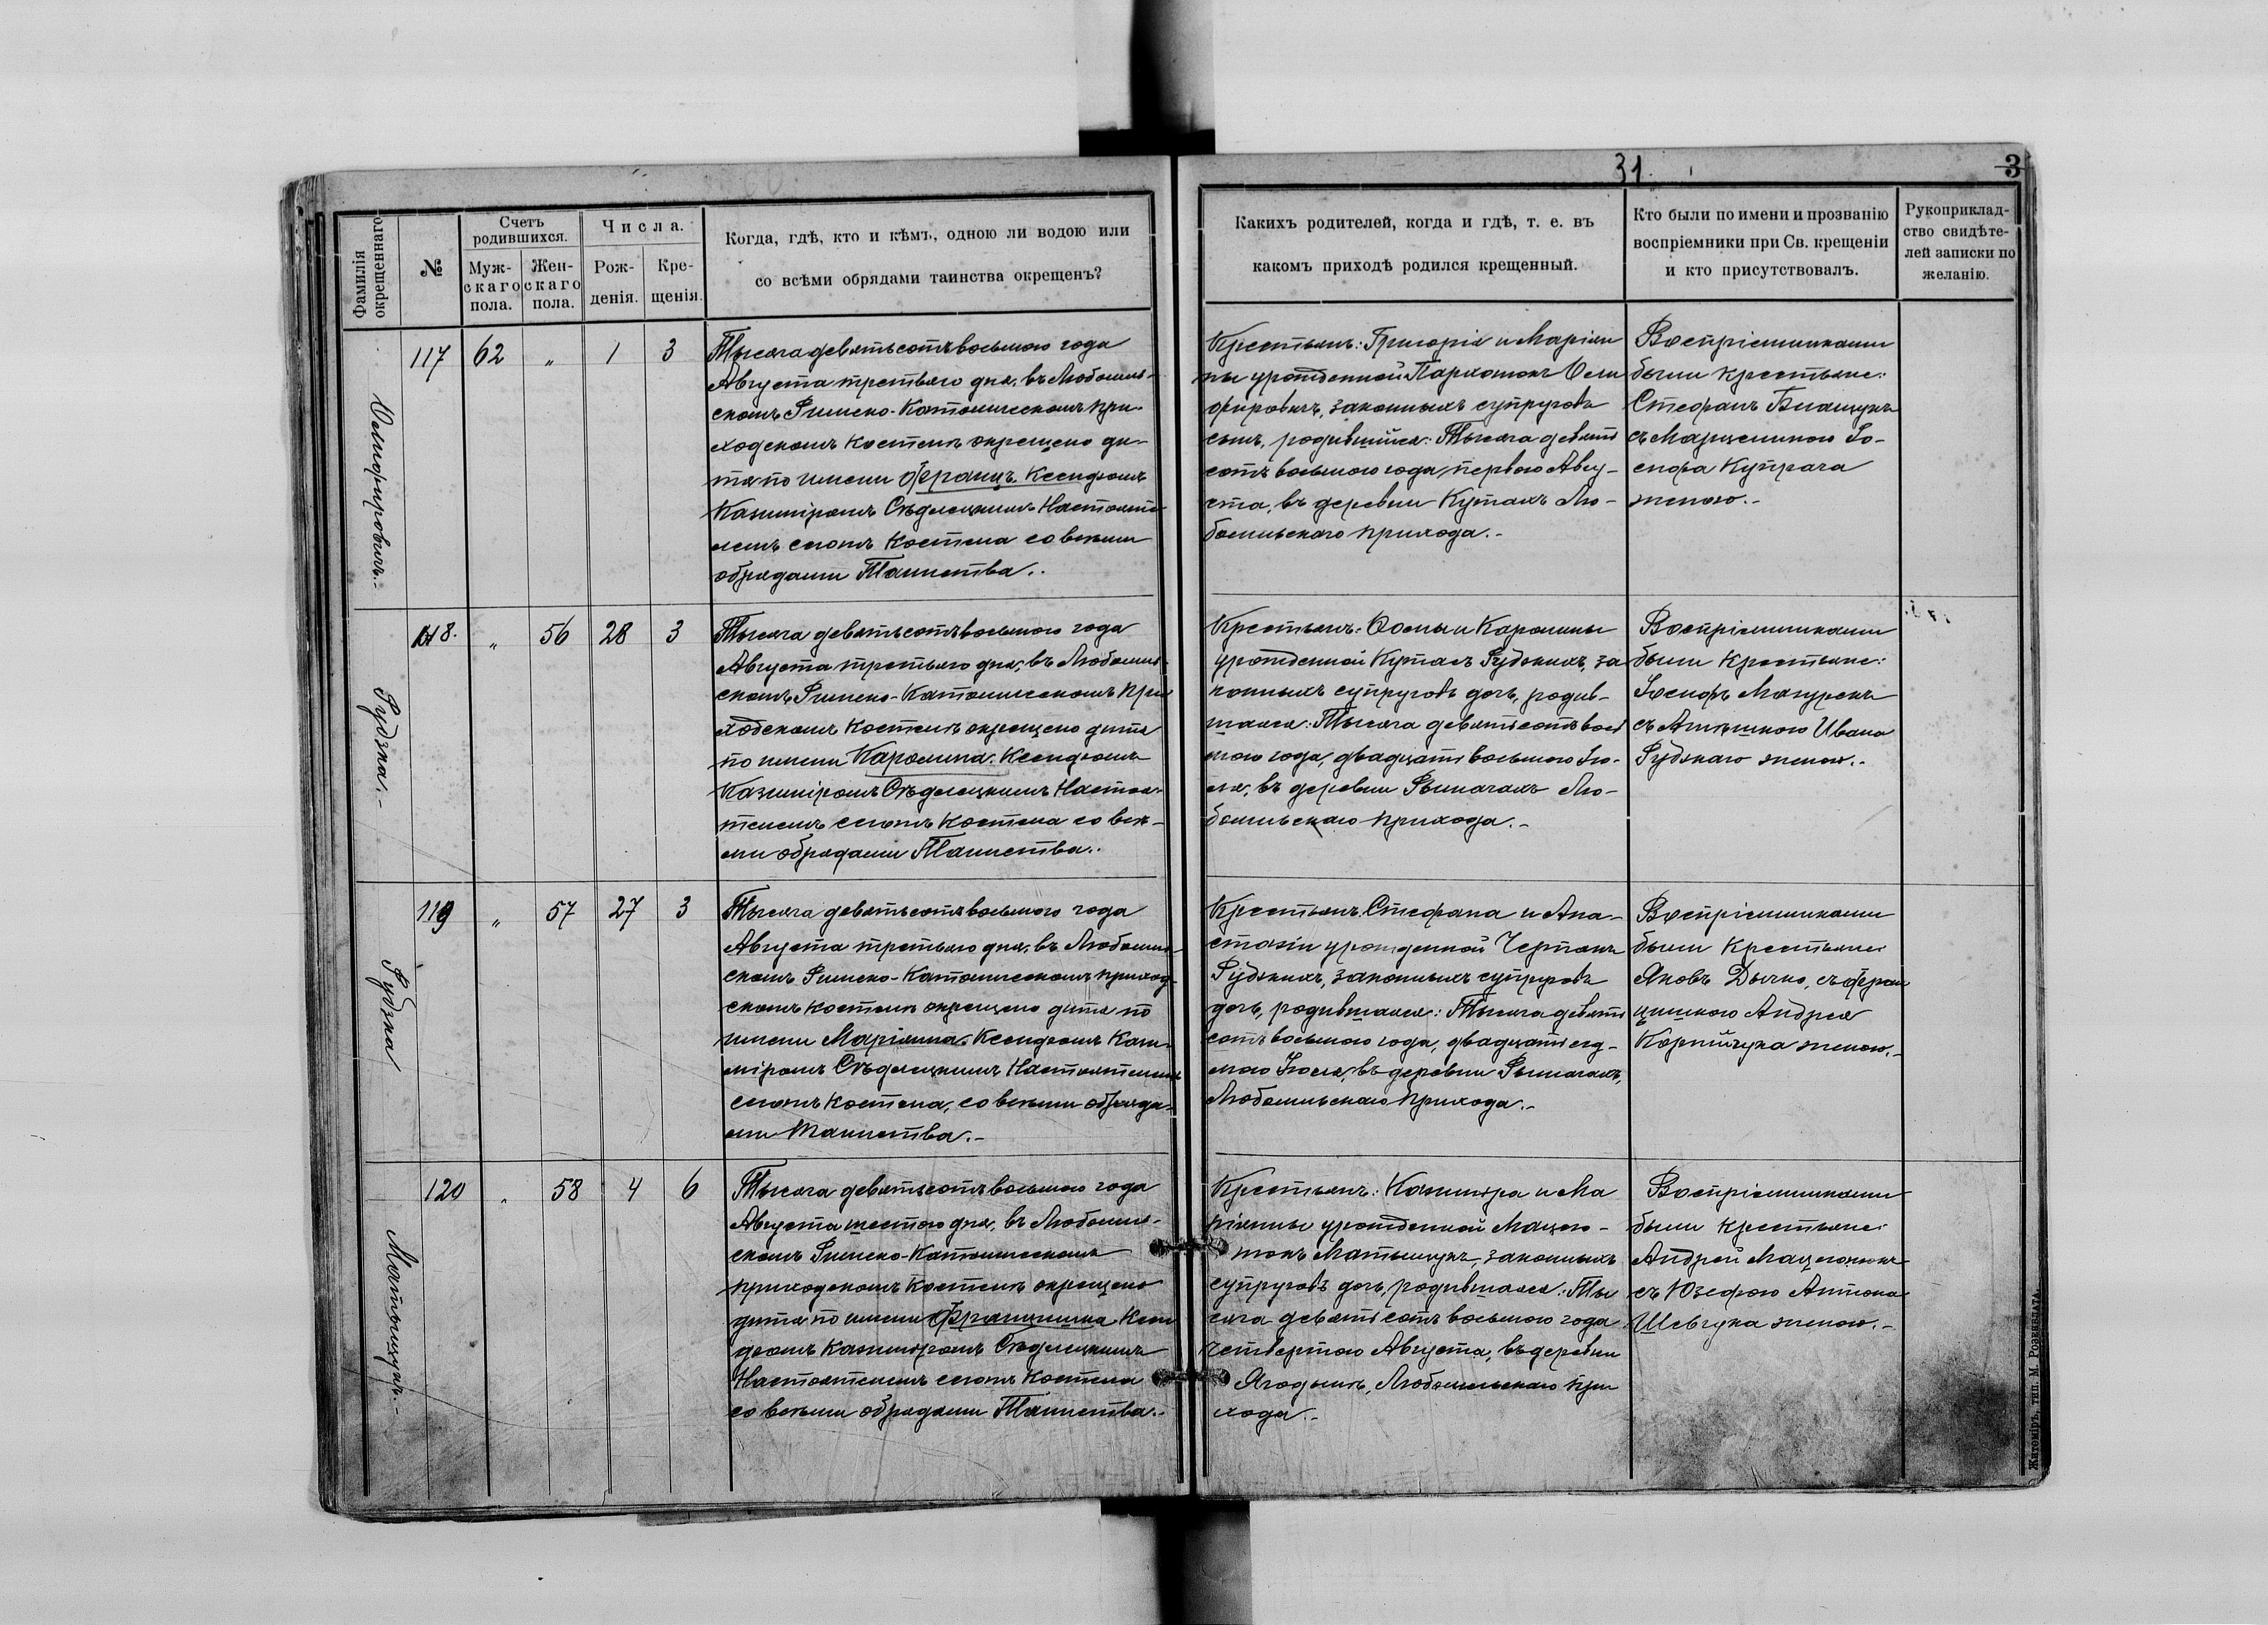 31
3
Фамилія окрещеннаго
№
Счетъ родившихся.
Муж-скаго пола.
Жен-скаго пола.
Числа.
Рож-денія.
Кре-щенія.
Когда, гдѣ, кто и кѣмъ, одною ли водою или
со всѣми обрядами таинства окрещенъ?
Какихъ родителей, когда и гдѣ, т. е. въ
какомъ приходѣ родился крещенный.
Кто были по имени и прозванію
воспріемники при Св. крещеніи
и кто присутствовалъ.
Рукоприклад-
ство свидѣте-
лей записки по
желанію.
117 62 „ 1 3
Тысяча девятьсотъ восьмого года
Августа третьяго дня, въ Любомль-
скомъ Римско-Католическомъ при-
ходскомъ костелѣ окрещено ди-
тя по имени Францъ. Ксендзомъ
Казиміромъ Сѣдлецкимъ Настояте
лемъ сего костела со всѣми
обрядами Таинства..
Крестьянъ: Григорія и Маріян
ны урожденной Пархомюкъ
законныхъ супруговъ
сынъ, родившійся: Тысяча девять
сотъ восьмого года, перваго Авгу-
ста, въ деревни Кутахъ Лю-
бомльскаго прихода.-
Воспріемниками
были крестьяне:
Стефанъ
съ Марцелиною Іо-
сифа Купрача
женою.-
Рудзка.-
118. „ 56 28 3
Тысяча девятьсотъ восьмого года
Августа третьяго дня, въ Любомль-
скомъ Римско-Католическомъ при
ходскомъ костелѣ окрещено дитя
по имени Каролина. Ксендзомъ
Казиміромъ Сѣдлецкимъ Настоя-
телемъ сего костела со всѣ-
ми обрядами Таинства..
Крестьянъ: Фомы и Каролины
урожденной Рудзкихъ, за
конныхъ супруговъ дочь, родив-
шаяся: Тысяча девятьсотъ вось
мого года, двадцать восьмого Ію-
ля, въ деревни Рымачахъ Лю-
бомльскаго прихода.-
Воспріемниками
были крестьяне:
Іосифъ Мазурекъ
съ Ивана
Рудзкаго женою.-
Рудзка
119 „ 57 27 3
Тысяча девятьсотъ восьмого года
Августа третьяго дня, въ Любомль-
скомъ Римско-Католическомъ приход-
скомъ костелѣ окрещено дитя по
имени Маріянна. Ксендзомъ Кази-
міромъ Сѣдлецкимъ Настоятелемъ
сего костела, со всѣми обряда-
ми Таинства.-
Крестьянъ: Стефана и Ана-
стазіи урожденной
Рудзкихъ, законныхъ супруговъ
дочь, родившаяся: Тысяча девять
сотъ восьмого года, двадцать сед-
мого Іюля, въ деревни Рымачахъ,
Любомльскаго прихода.-
Воспріемниками
были крестьяне:
Яковъ Дычко, съ Фран
цишкою Андрея
Корнійчука женою.-
Матыщукъ-
120 „ 58 4 6
Тысяча девятьсотъ восьмого года
Августа шестого дня, въ Любомль-
скомъ Римско-Католическомъ
приходскомъ костелѣ окрещено
дитя по имени Францишка. Ксен
дзомъ Казиміромъ Сѣдлецкимъ
Настоятелемъ сего костела
со всѣми обрядами Таинства.-
Крестьянъ: Казиміра и Ма
ріянны урожденной Мацею-
тонъ Матыщукъ, законныхъ
супруговъ дочь, родившаяся: Ты
сяча девять сотъ восьмого года
четвертого Августа, въ деревни
Ягодинѣ, Любомльскаго при
хода.-
Воспріемниками
были крестьяне:
Андрей
съ Юзефою Антона
Шевчука женою.-
Житоміръ, тип. М. Розенблата.